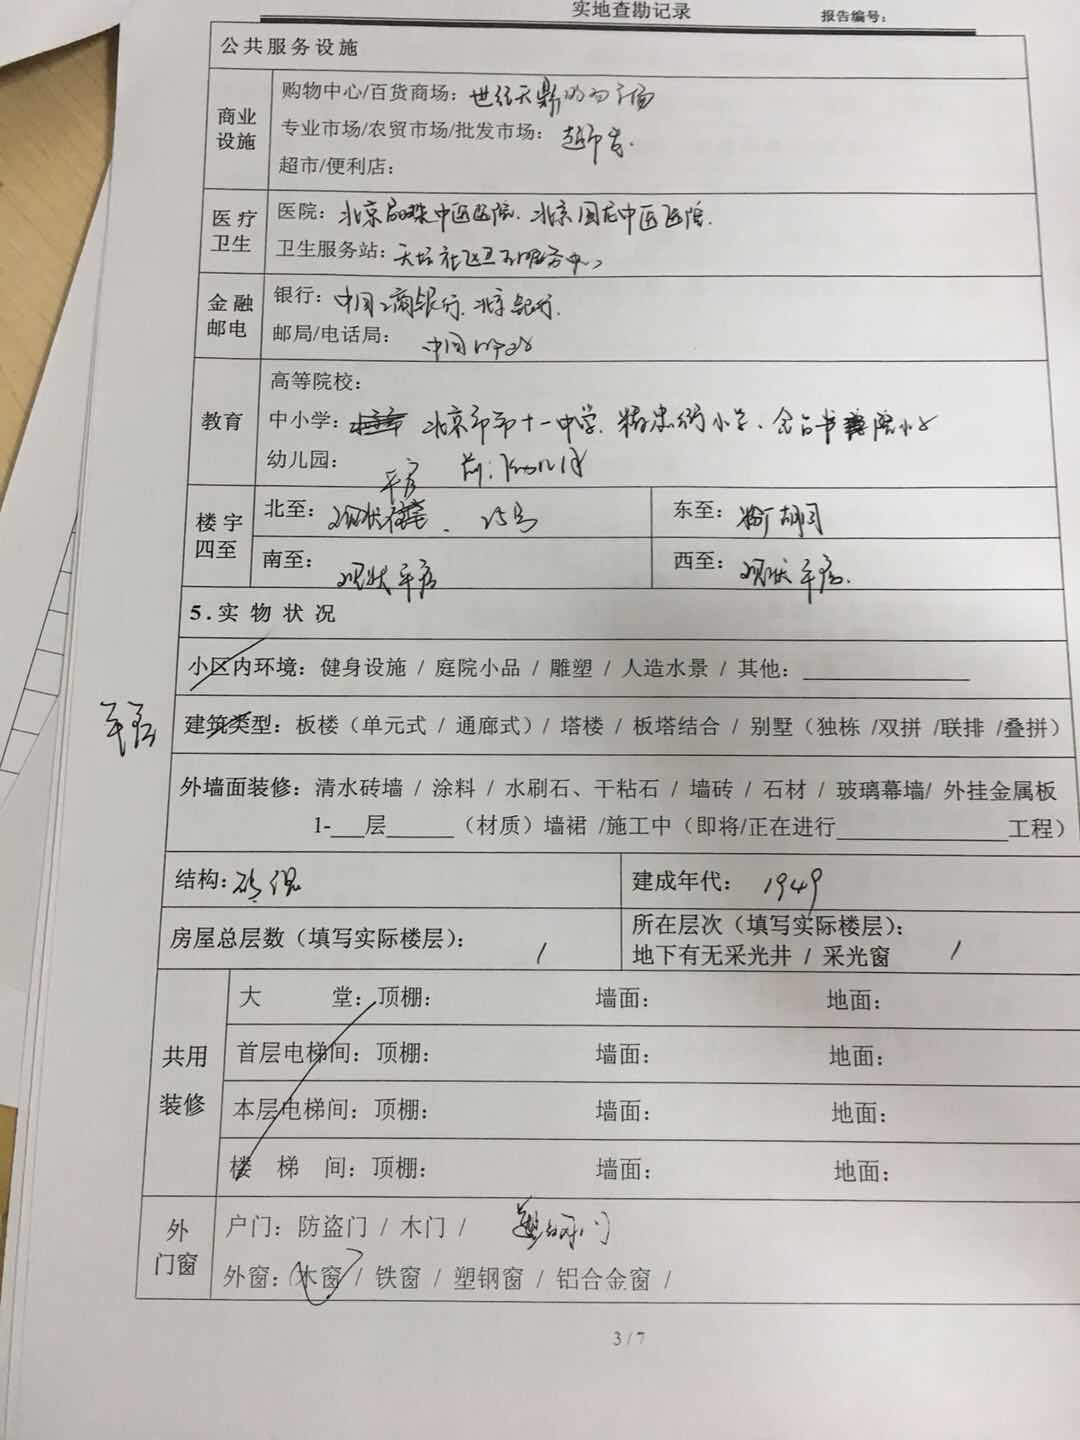 实地查勘记录
报告编号：
公共服务设施
商业设施
购物中心/百货商场：世纪天鼎购物广场
专业市场/农贸市场/批发市场：
超市/便利店：
医疗卫生
医院：北京 中医医院、北京国龙中医医院、
卫生服务站：天坛社区卫生服务中心
金融邮电
银行：中国工商银行、北京银行、
邮局/电话局：中国邮政
教育
高等院校：
中小学：北京市第十一中学、精忠街小学、金台书院小学
幼儿园：
楼宇四至
北至：现状平房、25号
东至： 胡同
南至：现状平房
西至：现状平房、
5.实 物 状 况
小区内环境：健身设施 / 庭院小品 / 雕塑 / 人造水景 / 其他：
平房
建筑类型：板楼（单元式 / 通廊式）/ 塔楼 / 板塔结合 / 别墅（独栋 /双拼 /联排 /叠拼）
外墙面装修：清水砖墙 / 涂料 / 水刷石、干粘石 / 墙砖 / 石材 / 玻璃幕墙/ 外挂金属板
1-___层______（材质）墙裙 /施工中（即将/正在进行_______________工程）
结构：砖混
建成年代：1949
房屋总层数（填写实际楼层）：1
所在层次（填写实际楼层）：
地下有无采光井 / 采光窗 1
共用装修
大 堂：顶棚： 墙面： 地面：
首层电梯间：顶棚： 墙面： 地面：
本层电梯间：顶棚： 墙面： 地面：
楼 梯 间：顶棚： 墙面： 地面：
外门窗
户门：防盗门 / 木门 /
外窗：木窗 / 铁窗 / 塑钢窗 / 铝合金窗 /
3 / 7